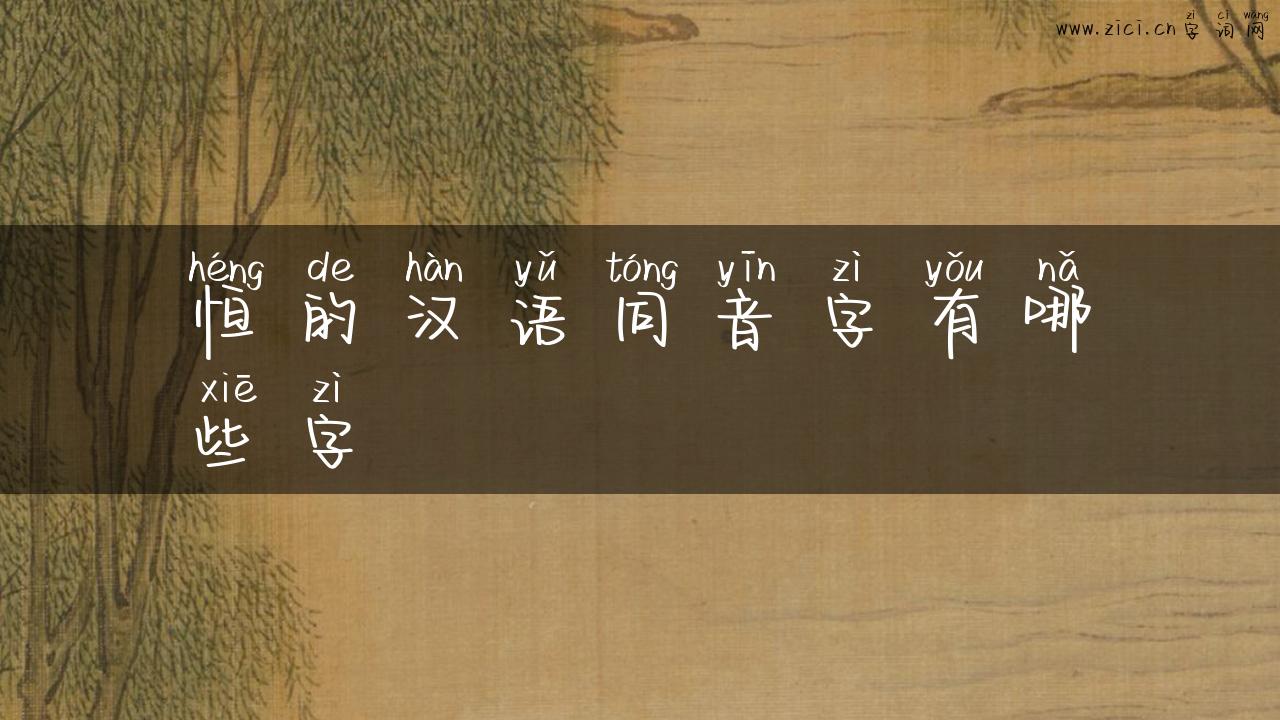 zì cí wǎng
www.zici.cn 字词网
héng de hàn yǔ tóng yīn zì yǒu nǎ
恒的汉语同音字有哪
xiē zì
些字